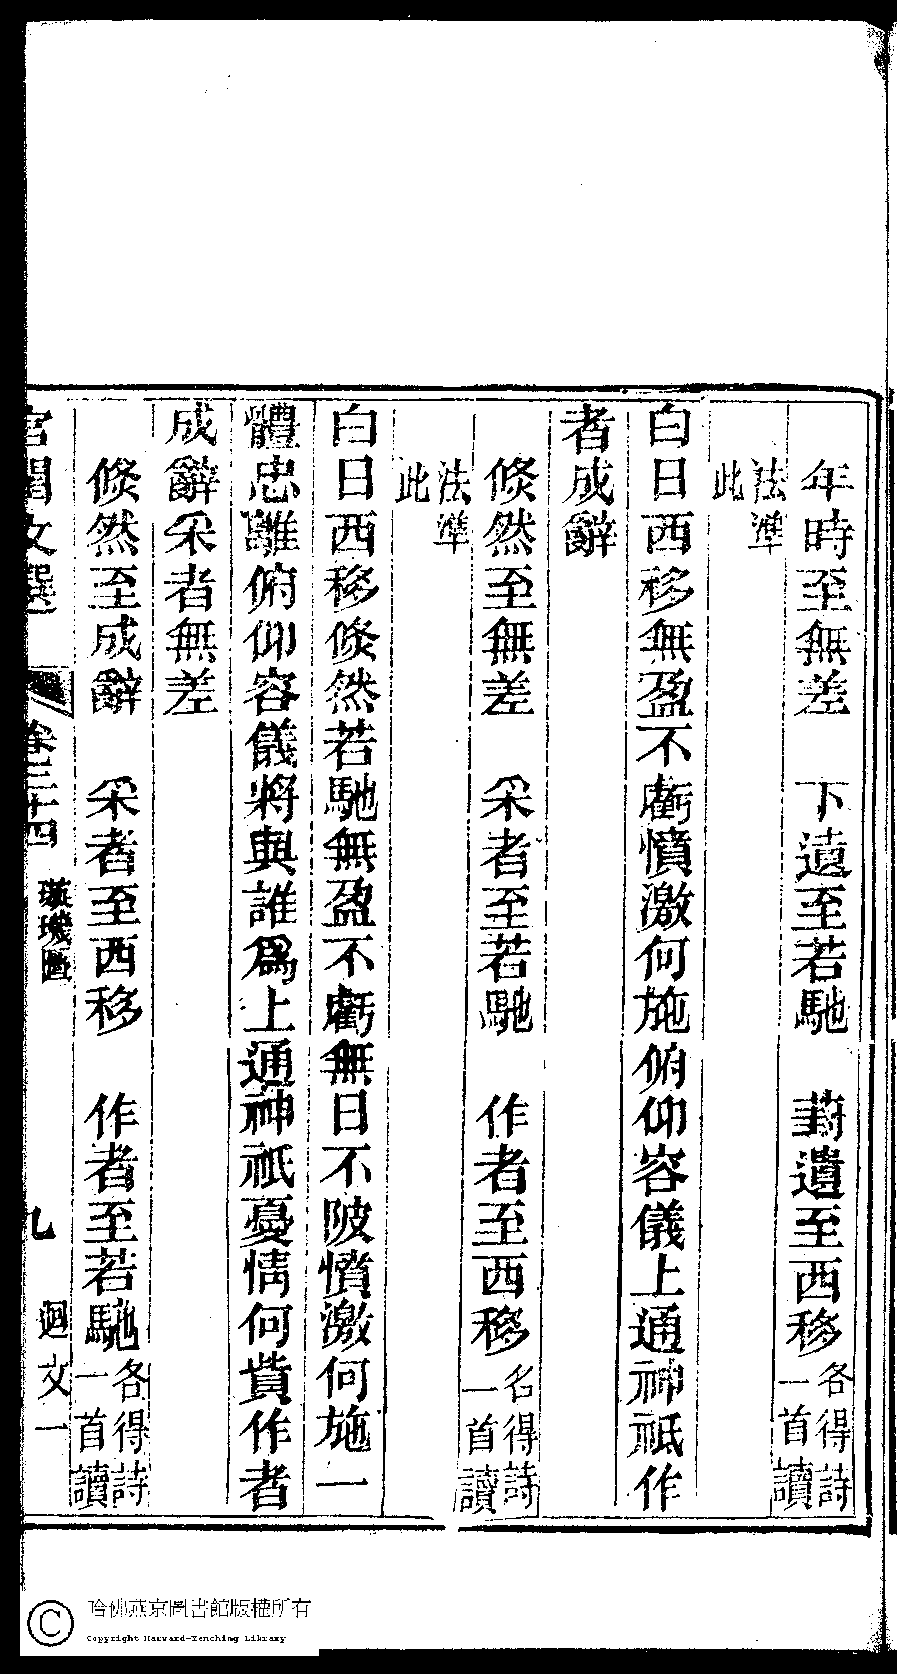 年時至無差　下遺至若馳　葑遺至西移各得詩一首讀
法準此
白日西移無盈不虧憤激何施俯仰容儀上通神祇作
者成辭
倐然至無差　采者至若馳　作者至西移各得詩一首讀
法準此
白日西移倐然若馳無盈不虧無日不陂憤激何施一
體忠離俯仰容儀將與誰爲上通神祇憂情何貲作者
成辭采者無差
倐然至成辭　采者至西移　作者至若馳各得詩一首讀
宮閨文選　卷二十四　璇璣圖　九　迴文一
哈佛燕京圖書館版權所有
Copyright Harvard-Yenching Library